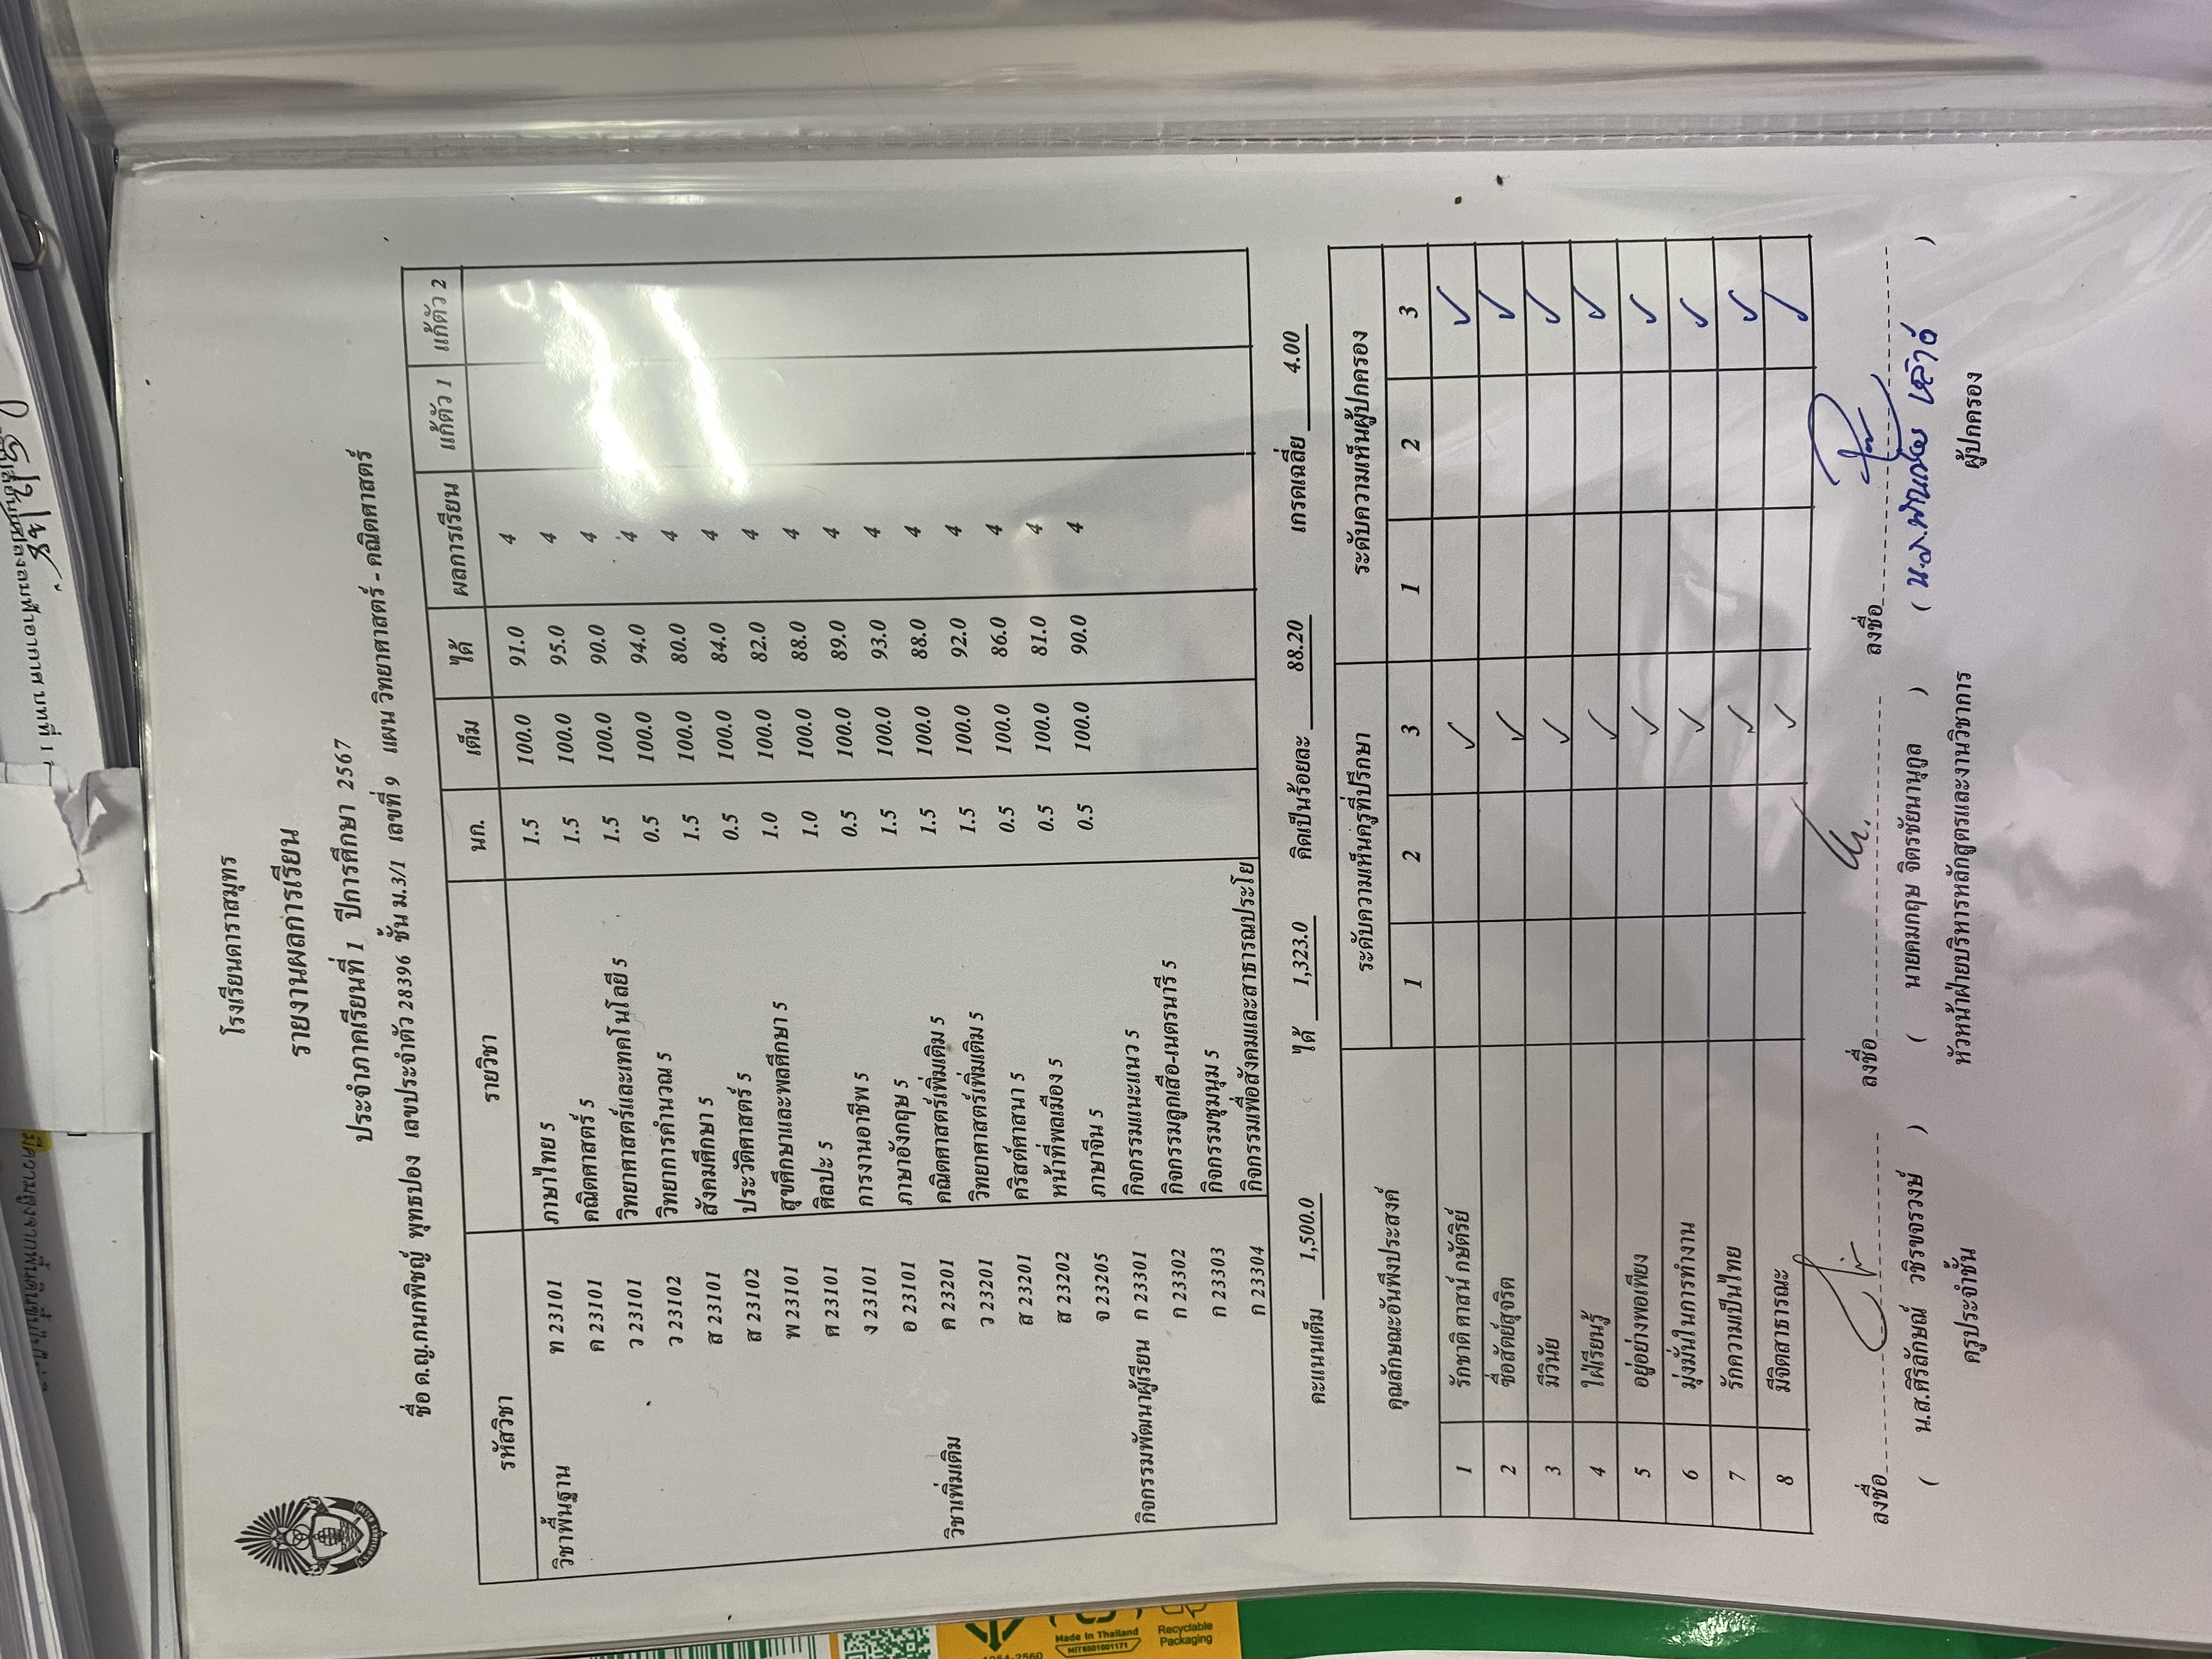 โรงเรียนดาราสมุทร
รายงานผลการเรียน
ประจำภาคเรียนที่ 1 ปีการศึกษา 2567
ชื่อ ด.ญ.กนกพิชญ์ พุทธปอง เลขประจำตัว 28396 ชั้น ม.3/1 เลขที่ 9 แผน วิทยาศาสตร์ - คณิตศาสตร์
รหัสวิชา รายวิชา นก. เต็ม ได้ ผลการเรียน แก้ตัว 1 แก้ตัว 2
วิชาพื้นฐาน ท 23101 ภาษาไทย 5 1.5 100.0 91.0 4
ค 23101 คณิตศาสตร์ 5 1.5 100.0 95.0 4
ว 23101 วิทยาศาสตร์และเทคโนโลยี 5 1.5 100.0 90.0 4
ว 23102 วิทยาการคำนวณ 5 0.5 100.0 94.0 4
ส 23101 สังคมศึกษา 5 1.5 100.0 80.0 4
ส 23102 ประวัติศาสตร์ 5 0.5 100.0 84.0 4
พ 23101 สุขศึกษาและพลศึกษา 5 1.0 100.0 82.0 4
ศ 23101 ศิลปะ 5 1.0 100.0 88.0 4
ง 23101 การงานอาชีพ 5 0.5 100.0 89.0 4
อ 23101 ภาษาอังกฤษ 5 1.5 100.0 93.0 4
วิชาเพิ่มเติม ค 23201 คณิตศาสตร์เพิ่มเติม 5 1.5 100.0 88.0 4
ว 23201 วิทยาศาสตร์เพิ่มเติม 5 1.5 100.0 92.0 4
ส 23201 คริสต์ศาสนา 5 0.5 100.0 86.0 4
ส 23202 หน้าที่พลเมือง 5 0.5 100.0 81.0 4
จ 23205 ภาษาจีน 5 0.5 100.0 90.0 4
กิจกรรมพัฒนาผู้เรียน ก 23301 กิจกรรมแนะแนว 5
ก 23302 กิจกรรมลูกเสือ-เนตรนารี 5
ก 23303 กิจกรรมชุมนุม 5
ก 23304 กิจกรรมเพื่อสังคมและสาธารณประโย
คะแนนเต็ม 1,500.0 ได้ 1,323.0 คิดเป็นร้อยละ 88.20 เกรดเฉลี่ย 4.00
คุณลักษณะอันพึงประสงค์ ระดับความเห็นครูที่ปรึกษา ระดับความเห็นผู้ปกครอง
1 2 3 1 2 3
1 รักชาติ ศาสน์ กษัตริย์ ✓ ✓
2 ซื่อสัตย์สุจริต ✓ ✓
3 มีวินัย ✓ ✓
4 ใฝ่เรียนรู้ ✓ ✓
5 อยู่อย่างพอเพียง ✓ ✓
6 มุ่งมั่นในการทำงาน ✓ ✓
7 รักความเป็นไทย ✓ ✓
8 มีจิตสาธารณะ ✓ ✓
ลงชื่อ ลงชื่อ ลงชื่อ
( น.ส.ศิริลักษณ์ วชิรขจรวงษ์ ) ( นายคมกฤษ จิตรชัยนานุกูล ) ( น.ส. )
ครูประจำชั้น หัวหน้าฝ่ายบริหารหลักสูตรและงานวิชาการ ผู้ปกครอง
Made In Thailand
MIT6501001171
Recyclable
Packaging